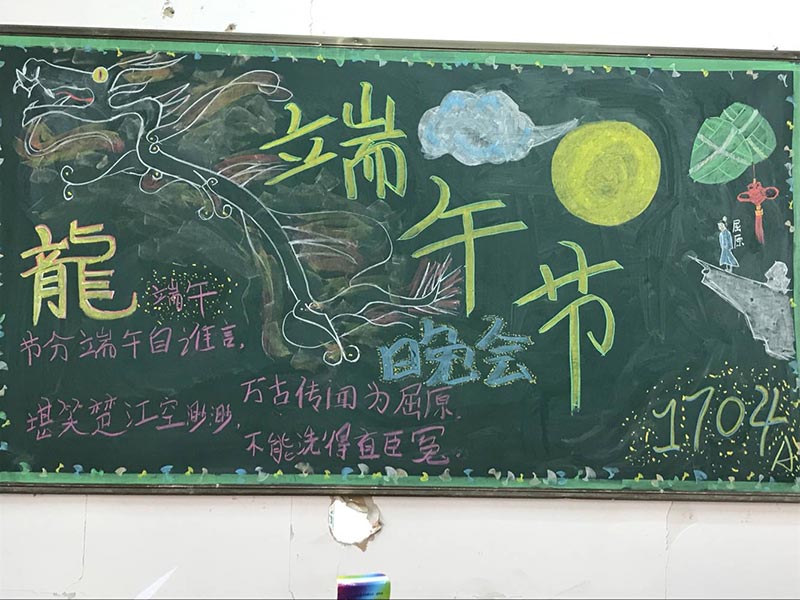 端午节
晚会
龍
端午
节分端午自谁言,
万古传闻为屈原.
堪笑楚江空渺渺,
不能洗得直臣冤。
屈原
1704
A